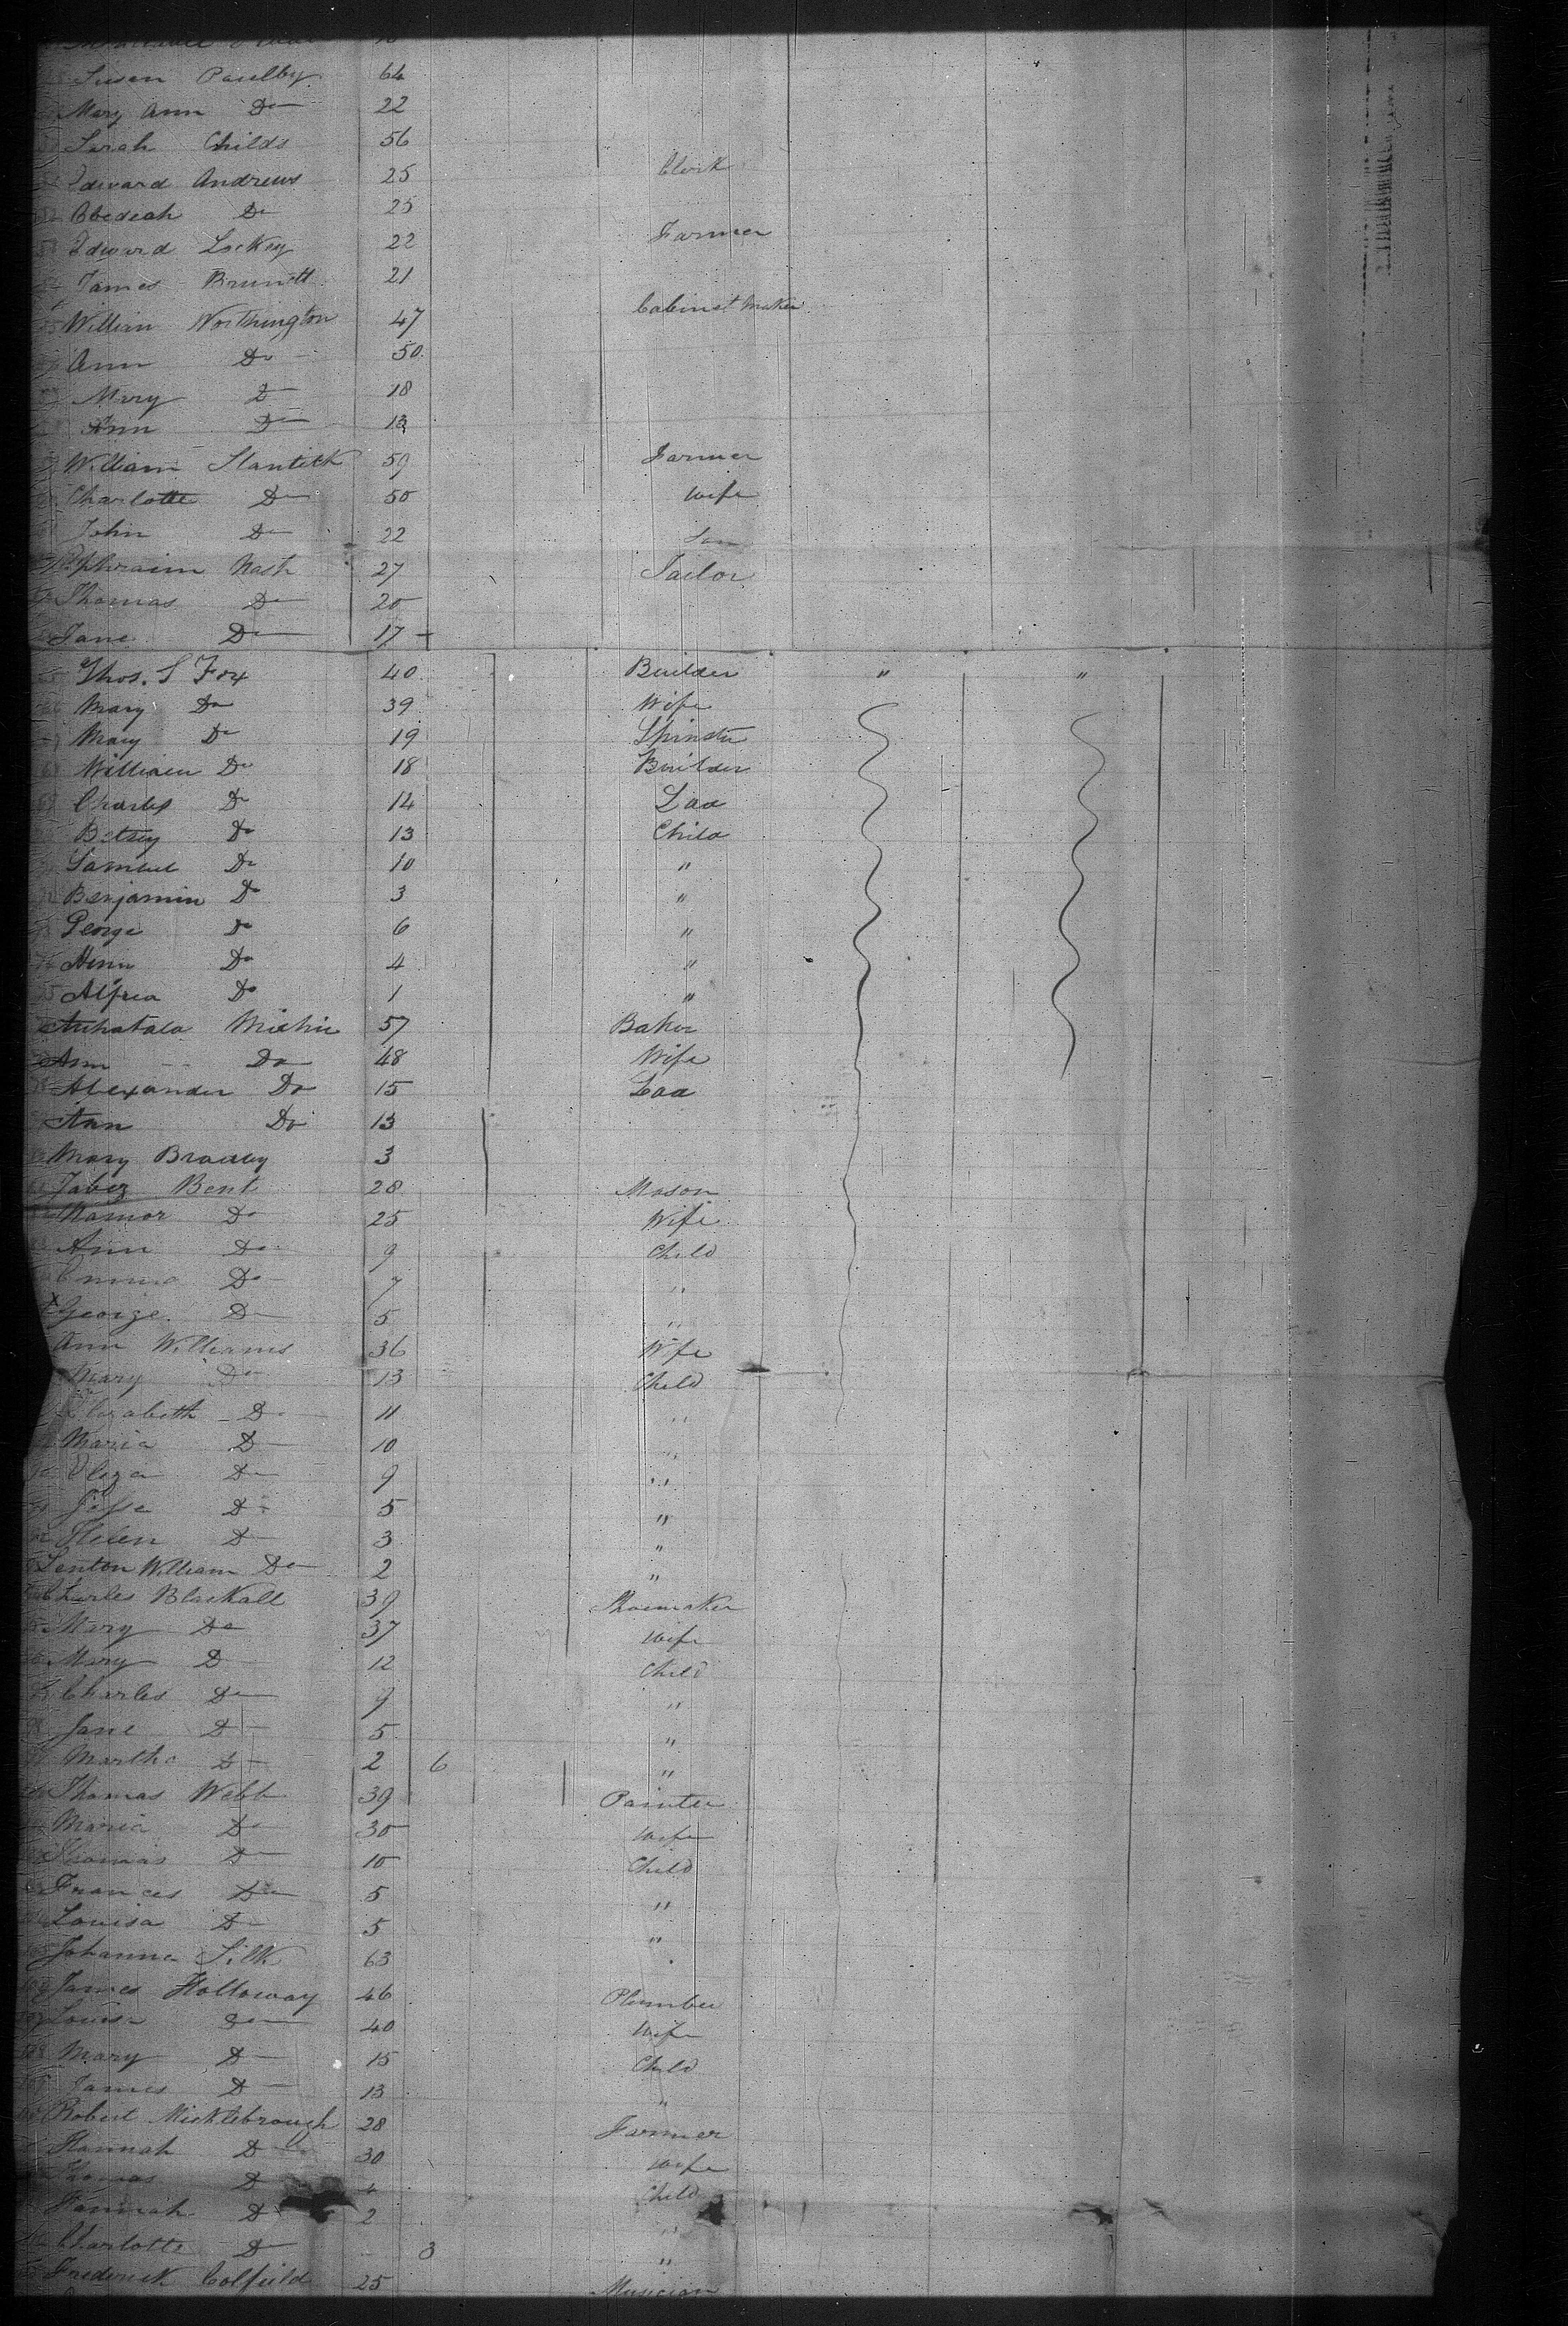 Susan Paulby 64
Mary Ann Do 22
Sarah Childs 56
Edward Andrews 25 Clerk
Obediah Do 25
Edward Lockey 22 Farmer
James Brunett 21
William Northington 47 Cabinet Maker
Ann Do 50
Mary D 18
Ann D 13
William 59 Farmer
Charlotte D 50 Wife
John D 22 Son
Ephraim Nash 27 Tailor
Thomas D 20
Jane D 17
Thos. S Fox 40 Builder " "
Mary Do 39 Wife
Mary Do 19 Spinster
William Do 18 Builder
Charles Do 14 Lad
Betsey Do 13 Child
Samuel Do 10 "
Benjamin Do 3 "
George Do 6 "
Ann Do 4 "
Alfred Do 1 "
Michie 57 Baker
Ann Do 48 Wife
Alexander Do 15 Lad
Ann Do 13
Mary Bradley 3
Jabez Bent 28 Mason
Do 25 Wife
Ann Do 9 Child
Emma Do 7 "
x George D 5 "
Ann Williams 36 Wife
Mary Do 13 Child
Elizabeth D 11 "
Maria D 10 "
Eliza D 9 "
Jesse D 5 "
Helen D 3 "
William Do 2 "
Charles Blackall 39 Shoemaker
Mary Do 37 Wife
Mary D 12 Child
Charles D 9 "
Jane D 5 "
Martha D 2 6 "
Thomas Webb 39 Painter
Maria D 30 Wife
Thomas D 10 Child
Frances D 5 "
Louisa D 5 "
Johanna Silk 63
James Holloway 46 Plumber
Louisa Do 40 Wife
Mary D 15 Child
James D 13 "
Robert Micklebrough 28 Farmer
Hannah D 30 Wife
Thomas D Child
Hannah D 2 "
Charlotte D 3 "
Frederick Colfield 25 Musician